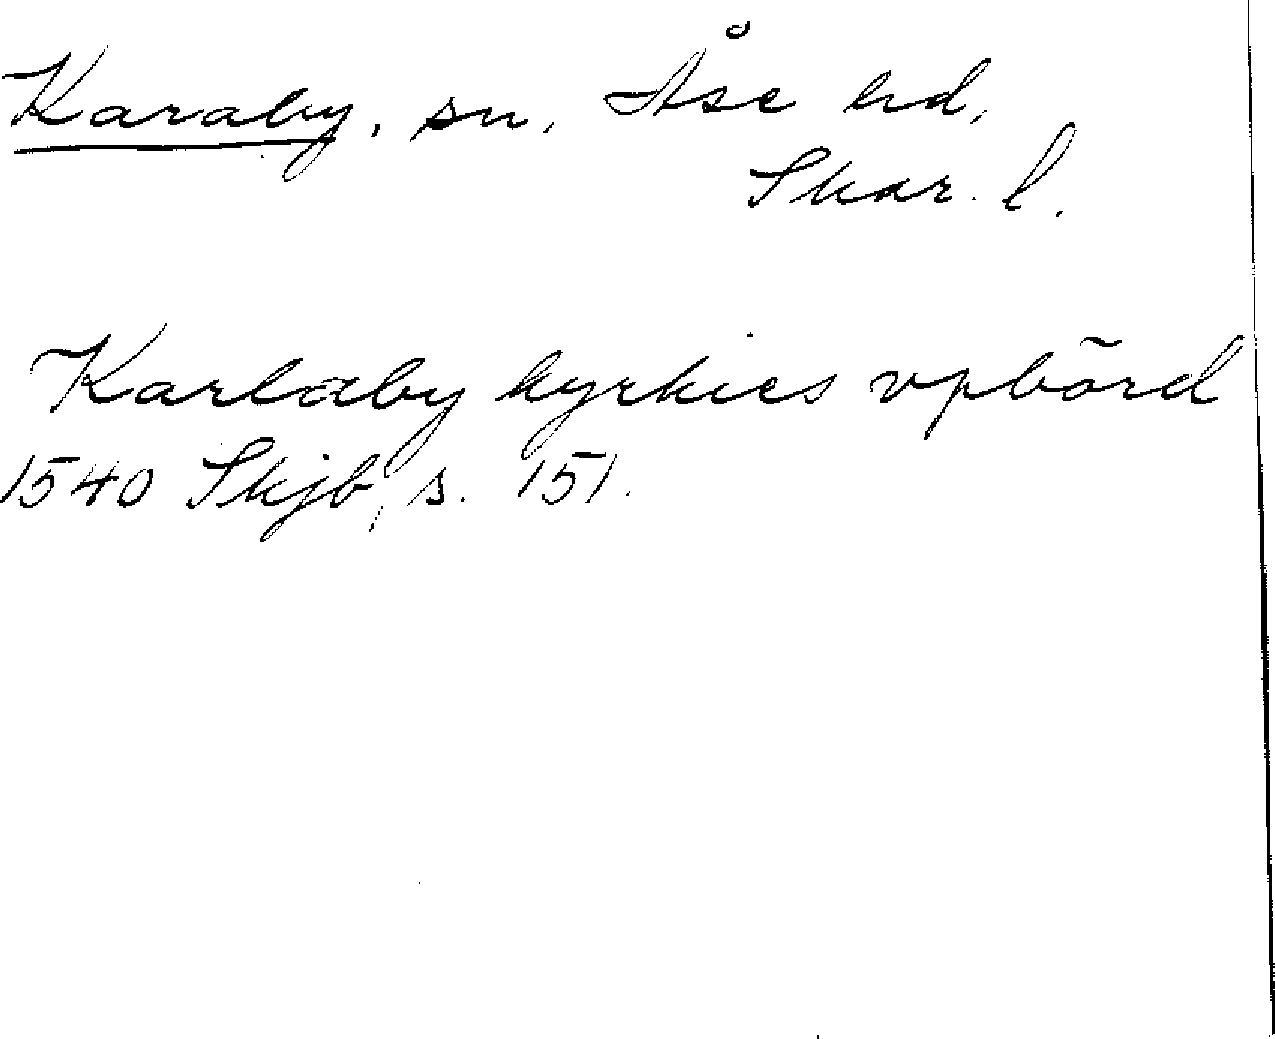 Karaby, sn, Åse hd,
Skar. l.
Karlaby kyrkies vpbörd
1540 Skjb, s. 151.